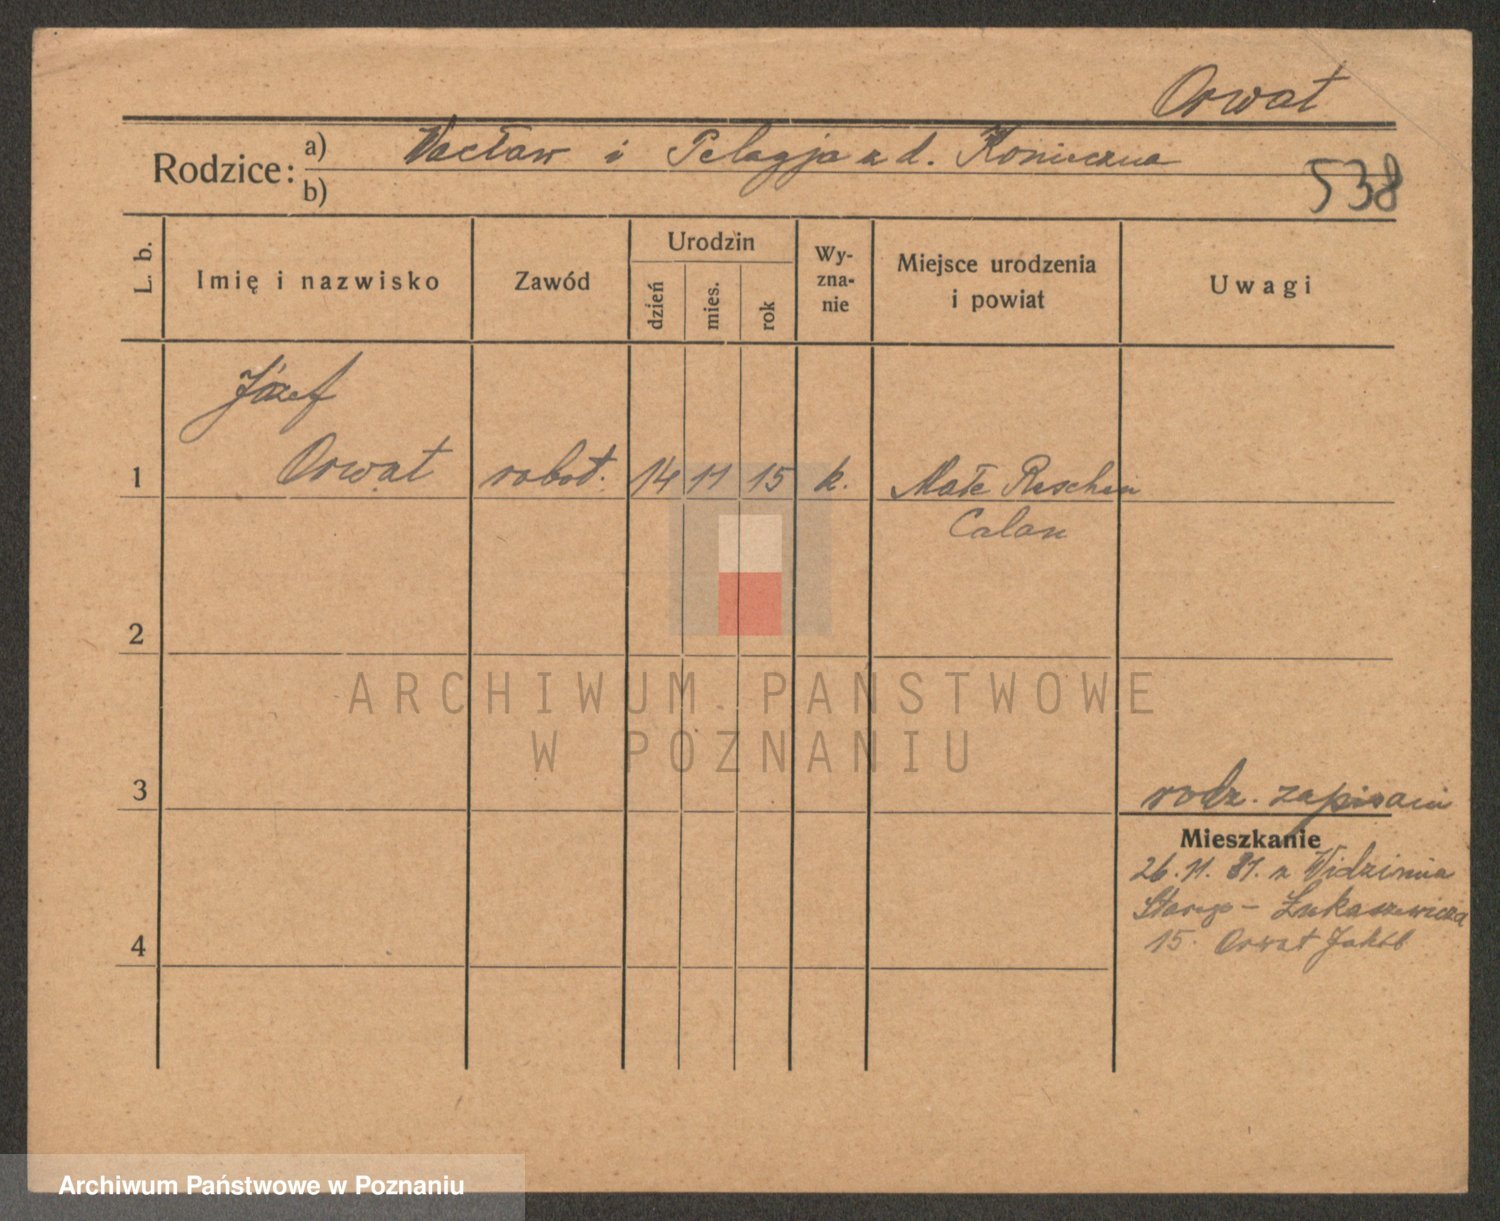 Orwat
Rodzice: a) Wacław i Pelagja z d. Konieczna
b)
538
L. b.
Imię i nazwisko
Zawód
Urodzin
dzień
mies.
rok
Wy-
zna-
nie
Miejsce urodzenia
i powiat
Uwagi
Józef
1 Orwat robot. 14 11 15 k. Małe Reschen
Calau
2
ARCHIWUM PAŃSTWOWE
W POZNANIU
3
rodz. zapisani
Mieszkanie
26.11.31. z Widzimia
Starego - Łukaszewicza
15. Orwat Jakób
4
Archiwum Państwowe w Poznaniu